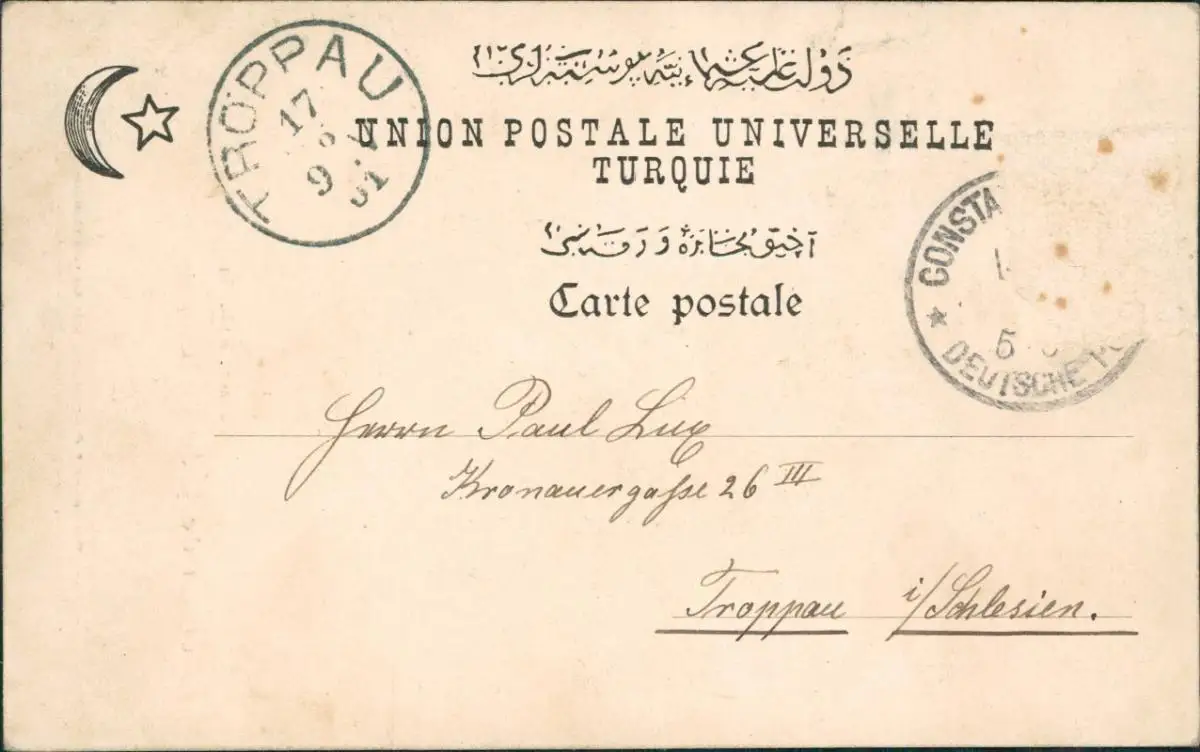 TROPPAU
17
9 01
دولت علیهٔ عثمانیه پوسته‌لری
UNION POSTALE UNIVERSELLE
TURQUIE
آچیق مخابره ورقه‌سی
Carte postale
CONSTA
5
DEUTSCHE
Herrn Paul Lux
Kronauergasse 26 III
Troppau i/Schlesien.